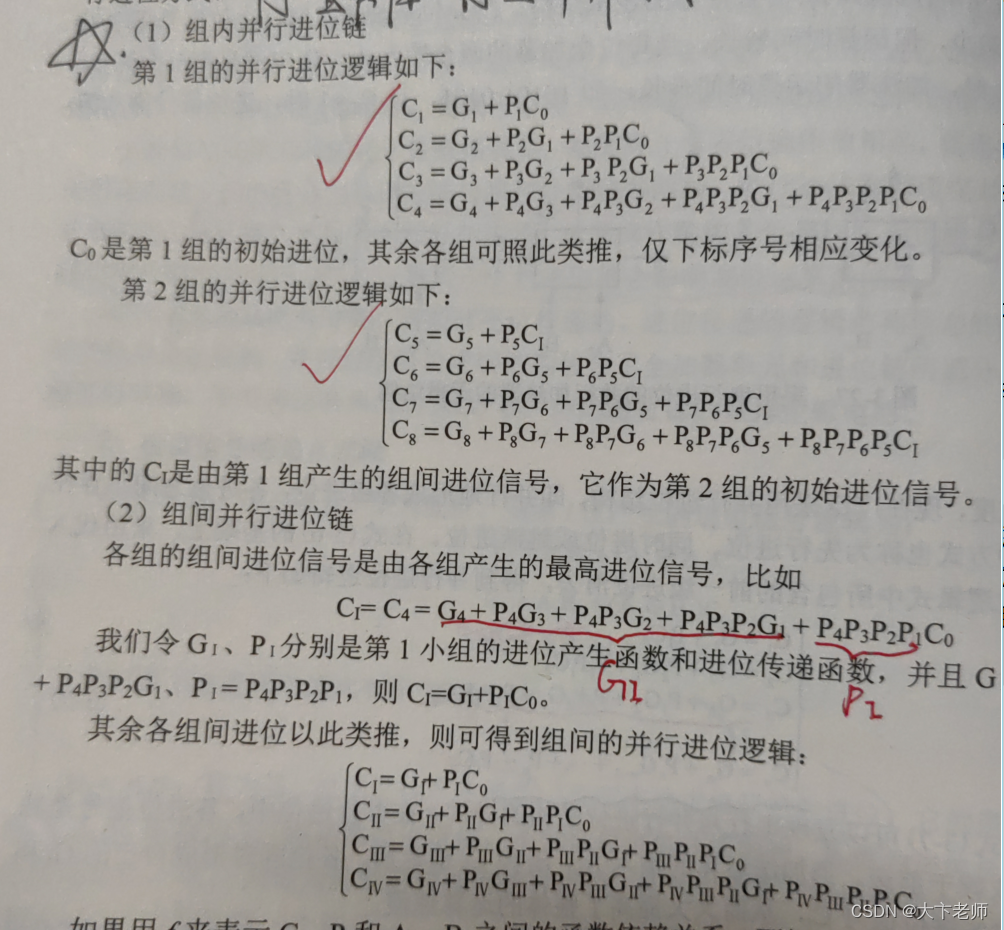 (1) 组内并行进位链
第 1 组的并行进位逻辑如下：
C₁ = G₁ + P₁C₀
C₂ = G₂ + P₂G₁ + P₂P₁C₀
C₃ = G₃ + P₃G₂ + P₃P₂G₁ + P₃P₂P₁C₀
C₄ = G₄ + P₄G₃ + P₄P₃G₂ + P₄P₃P₂G₁ + P₄P₃P₂P₁C₀
C₀ 是第 1 组的初始进位，其余各组可照此类推，仅下标序号相应变化。
第 2 组的并行进位逻辑如下：
C₅ = G₅ + P₅C_I
C₆ = G₆ + P₆G₅ + P₆P₅C_I
C₇ = G₇ + P₇G₆ + P₇P₆G₅ + P₇P₆P₅C_I
C₈ = G₈ + P₈G₇ + P₈P₇G₆ + P₈P₇P₆G₅ + P₈P₇P₆P₅C_I
其中的 C_I是由第 1 组产生的组间进位信号，它作为第 2 组的初始进位信号。
(2) 组间并行进位链
各组的组间进位信号是由各组产生的最高进位信号，比如
C_I= C₄ = G₄ + P₄G₃ + P₄P₃G₂ + P₄P₃P₂G₁ + P₄P₃P₂P₁C₀
我们令 G_I、P_I分别是第 1 小组的进位产生函数和进位传递函数，并且 G
G_I P_I
+ P₄P₃P₂G₁、P_I = P₄P₃P₂P₁，则 C_I=G_I+P_IC₀。
其余各组间进位以此类推，则可得到组间的并行进位逻辑：
C_I = G_I+ P_IC₀
C_II = G_II+ P_IIG_I+ P_IIP_IC₀
C_III = G_III+ P_IIIG_II+ P_IIIP_IIG_I+ P_IIIP_IIP_IC₀
C_IV = G_IV+ P_IVG_III+ P_IVP_IIIG_II+ P_IVP_IIIP_IIG_I+ P_IVP_IIIP_IIP_IC₀
CSDN @大卞老师